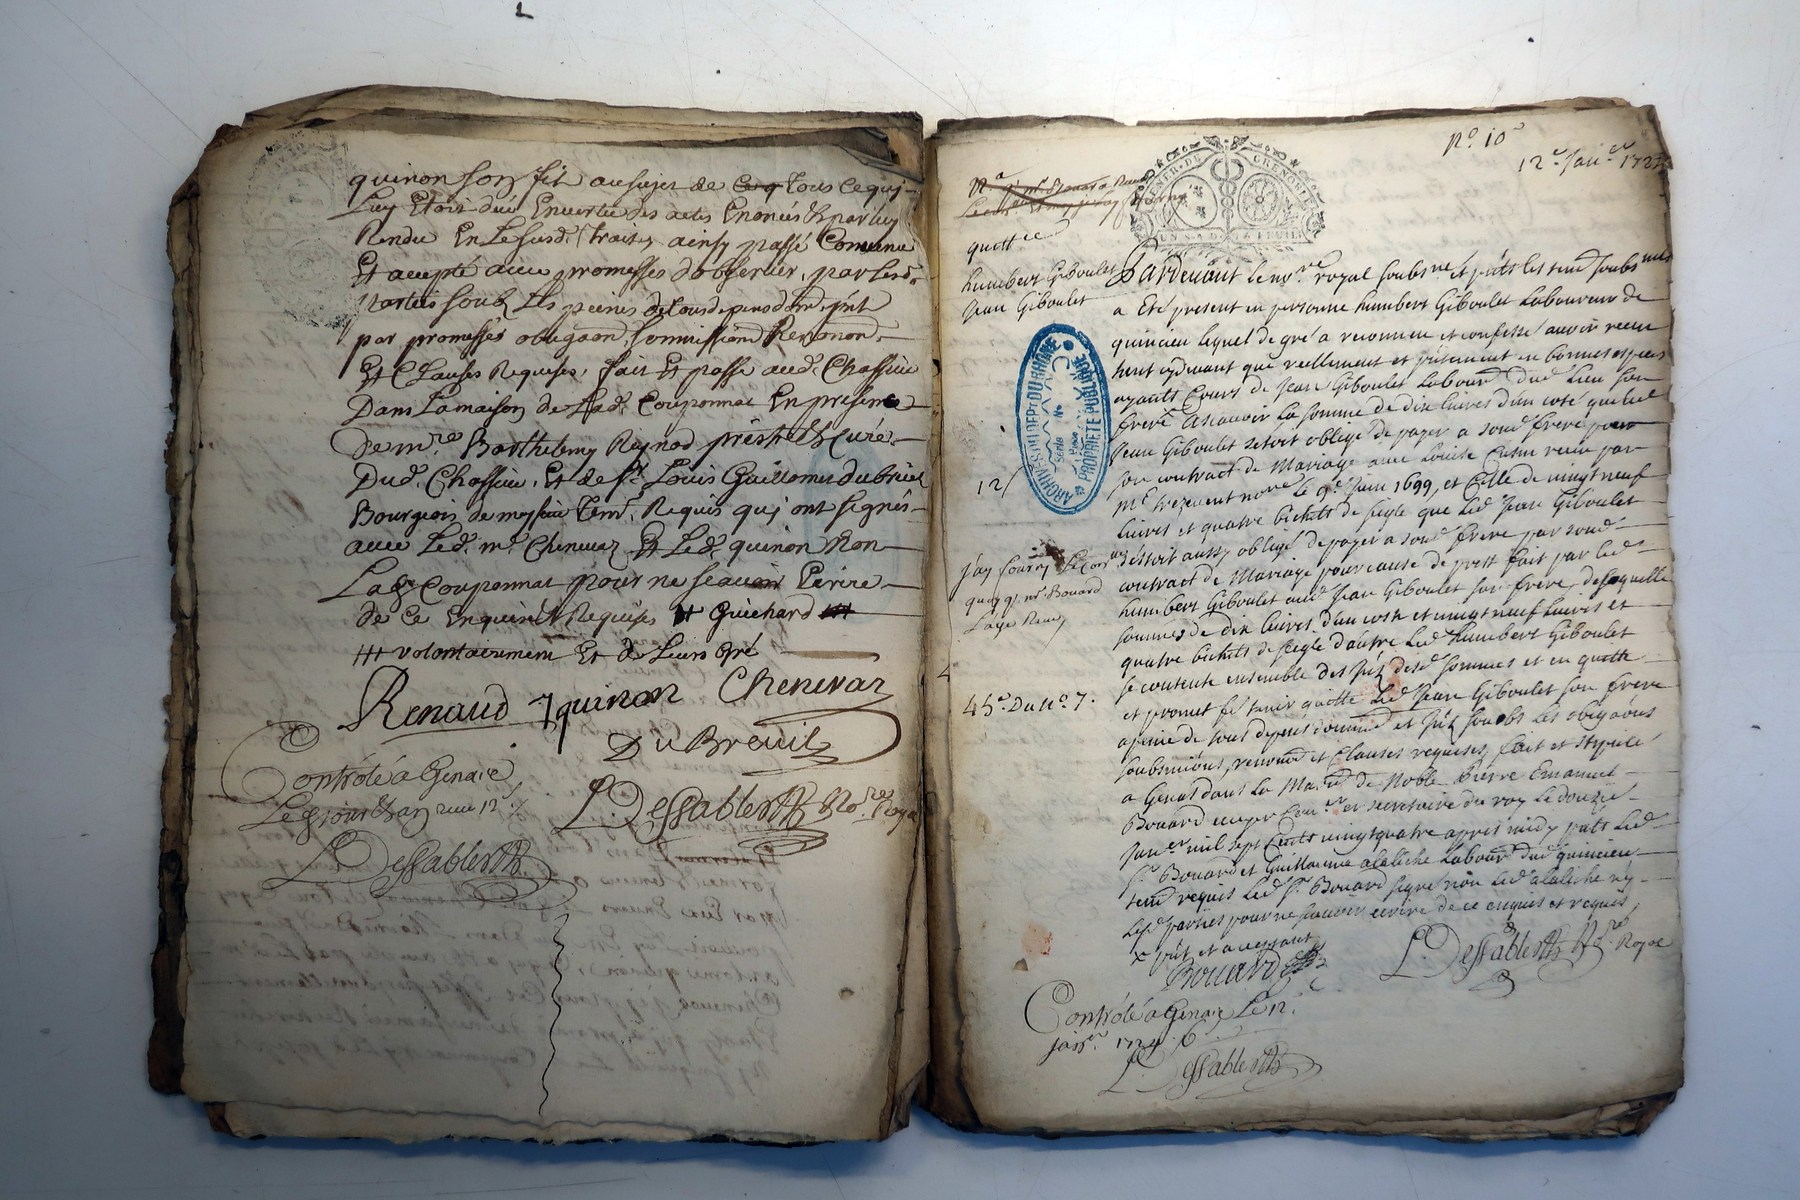 quinon son fils au sujet de ce q tous ce qui
Luy Etoit due En vertu des actes Enoncés & par luy
Rendu En Le susd. traitez ainsy passé Convenu
Et accepté avec promesses d'observer, par Lesd.
Parties soub Les peines de tous depens dom. jnt
par promesses obligaon. soummissions Renonon.
Et Clauses Requises, fait Et passé aud. Chassieu
Dans La maison de Lad. Couponnat En presence
De mre Barthelemy Reynod prestre & Curé
Dud. Chassieu, Et de Sr. Louis Guillomes dubrieul
Bourgeois de meyssieu Tem. Requis quj ont signés
avec Led. mr. Chenevaz Et Led. quinon Non
Lad. Couponnat pour ne scavoir Ecrire
de Ce Enquise & Requise # Guichard #
# volontairement Et de Leurs Gré
Renaud J quinon Chenevaz
Du Breuil
Controlé a Genaie
Les jour & an receu 12 s.
L. Dessablettz No.re Royal
L. Dessablettz
No 10e
12e Janer 1724
GENER. DE GRENOBLE
quittce
humbert Giboulet
Jean Giboulet
Pardevant le nore royal soubsne et pnts les tem. soubsnmes
a Eté present en personne humbert Giboulet Laboureur de
quincieu lequel de gré a reconneu et confessé avoir receu
tent cydevant que reellement et presentement en bonnes especes
ayants Cours de Jean Giboulet Labour. dud. lieu son
frere Ascavoir La somme de dix livres d'un costé que led.
Jean Giboulet s'etoit obligé de payer a sond. frere pour
son contract de Mariage avec Louise receu par
me nore le 9e Juin 1699, et Celle de vingt neuf
livres et quatre bichets de seigle que led. Jean Giboulet
s'estoit aussy obligé de payer a sond. frere par sond.
contract de Mariage pour cause de prest fait par led.
humbert Giboulet aud. Jean Giboulet son frere, desquelles
sommes de dix livres d'un coste et vingt neuf livres et
quatre bichets de seigle d'autre led. humbert Giboulet
se contente ensemble des jnts desd. sommes et en quitte
et promet fe. tenir quitte led. Jean Giboulet son frere
a peine de tous depens domm. et jnts soubs les obligaons
soubmissions, renoncaon et Clauses requises, fait et stipulé
a Genas dans La Maison de Noble Pierre Emanuel
Bouard ecuyer Conser secretaire du roy le douzie
Janer mil sept Cents vingt quatre apres midy pnts led.
Sr. Bouard et Guillaume alaliche Labour. dud. quincieu
tem. requis led. Sr. Bouard signé non led. alaliche ny
lesd. parties pour ne scavoir ecrire de ce enquis et requis,
Bouard
L. Dessablettz No.re Royal
Controlé a Genaie Le 12.
janer 1724. 6s
L. Dessablettz
ARCHIVES DU DEPT DU RHÔNE
PROPRIÉTÉ PUBLIQUE
Série No
Pièce
12 s
Bouard
45e. Du no 7.